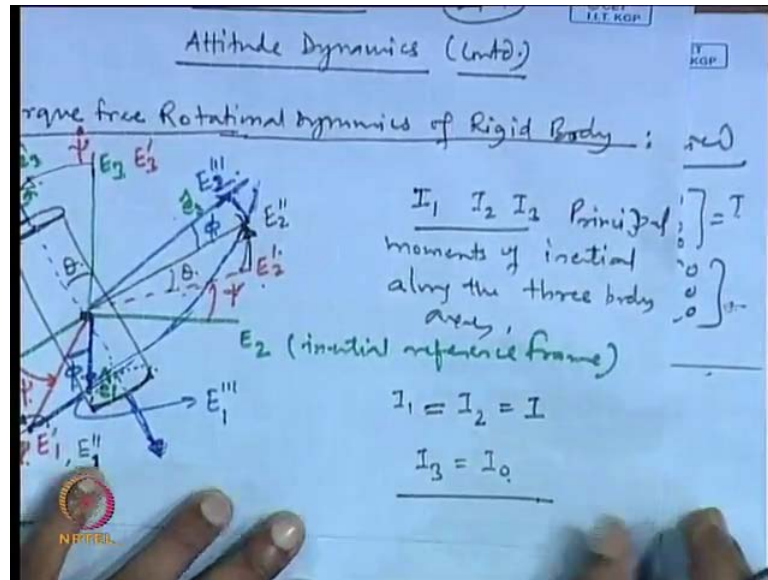 I.I.T. KGP
KGP
Attitude Dynamics (Contd.)
rque free Rotational Dynamics of Rigid Body :
ψ E3 E3'
E2'''
ê2 φ E2''
θ θ E2' ψ
E2 (inertial reference frame)
I1 I2 I3 Principal
moments of inertial
along the three body
axes,
] = I
ψ φ ê1
E1'''
E1', E1''
I1 = I2 = I
I3 = I0
NPTEL